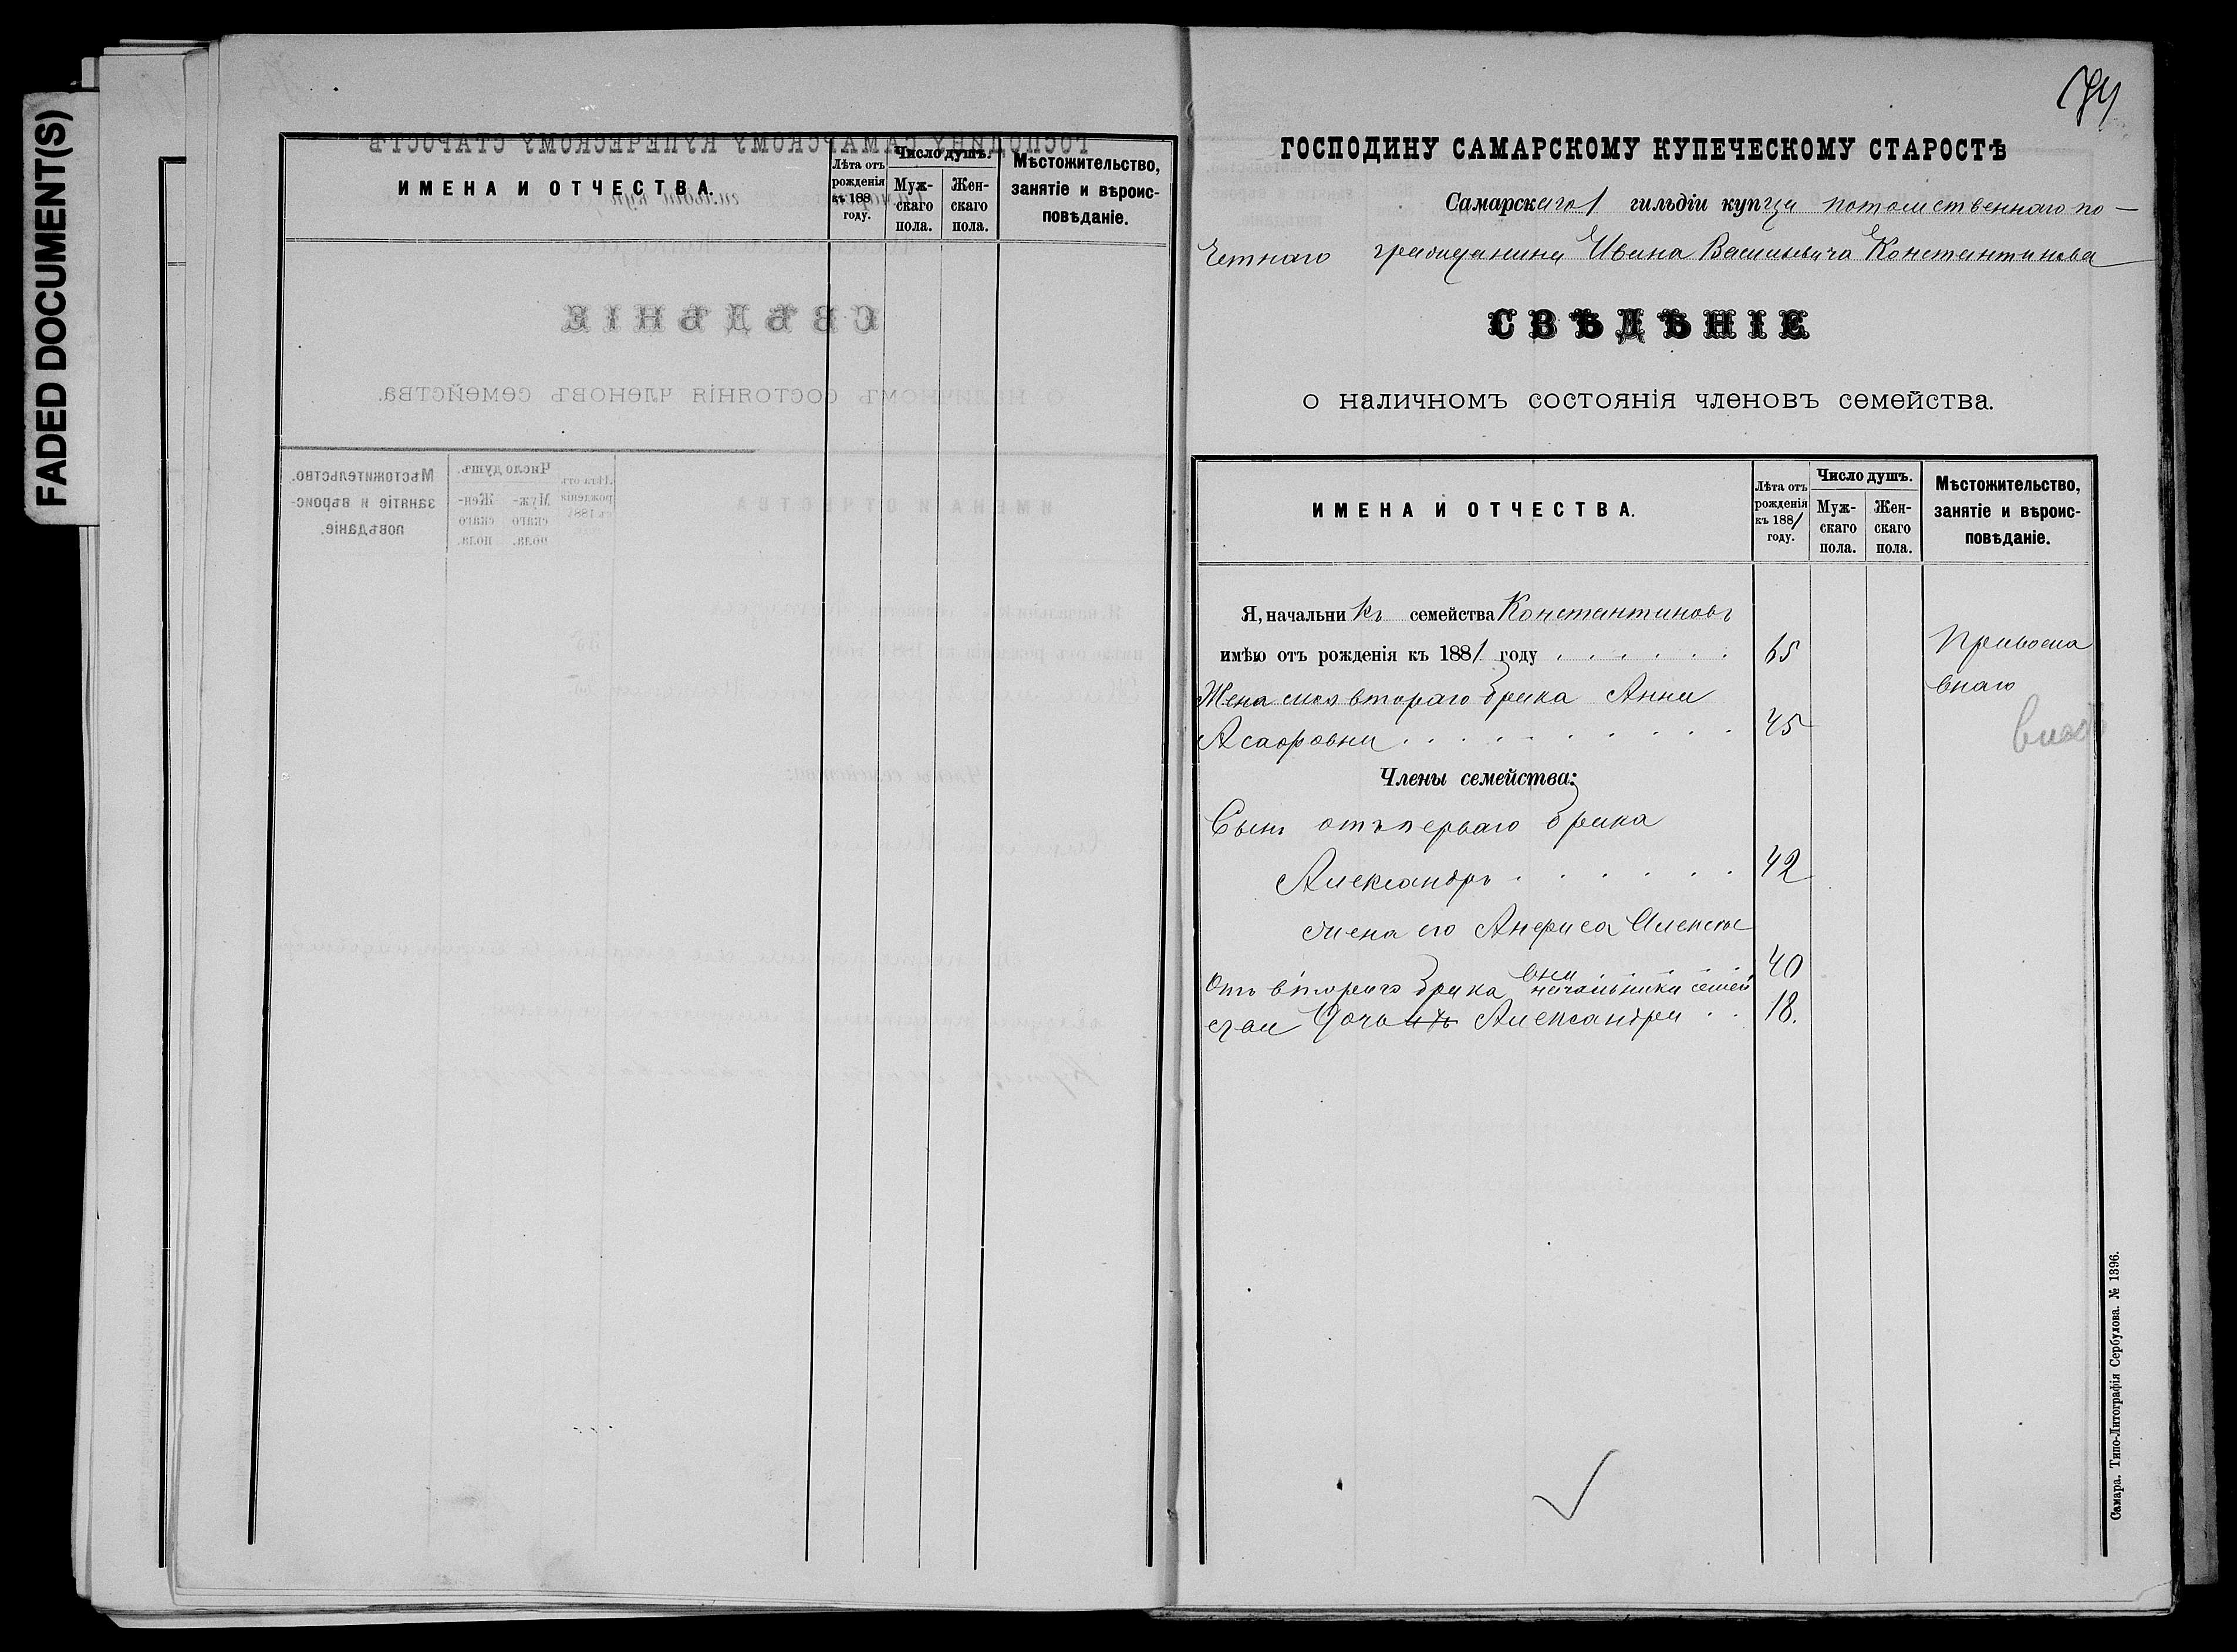 FADED DOCUMENT(S)
ИМЕНА И ОТЧЕСТВА.
Лѣта отъ рожденія къ 188 году.
Число душъ.
Муж-скаго пола.
Жен-скаго пола.
Мѣстожительство, занятіе и вѣроис-повѣданіе.
ГОСПОДИНУ САМАРСКОМУ КУПЕЧЕСКОМУ СТАРОСТѢ
Самарскаго 1 гильдіи купца потомственнаго по-
четнаго гражданина Ивана Васильевича Константинова
СВѢДѢНІЕ
о наличномъ состоянія членовъ семейства.
ИМЕНА И ОТЧЕСТВА.
Лѣта отъ рожденія къ 1881 году.
Число душъ.
Муж-скаго пола.
Жен-скаго пола.
Мѣстожительство, занятіе и вѣроис-повѣданіе.
Я, начальникъ семейства Константиновъ
имѣю отъ рожденія къ 1881 году . . . . . . 65 Правосла
Жена моя втораго брака Анна внаго
. . . . . . . . . . 45
Члены семейства:
Сынъ отъ перваго брака
Александръ . . . . . . 42
жена его Анфиса Алексѣе
вна . . . . 40
Отъ втораго брака начальника семей
ства Дочь Александра . . 18.
Самара. Типо-Литографія Сербулова. № 1396.